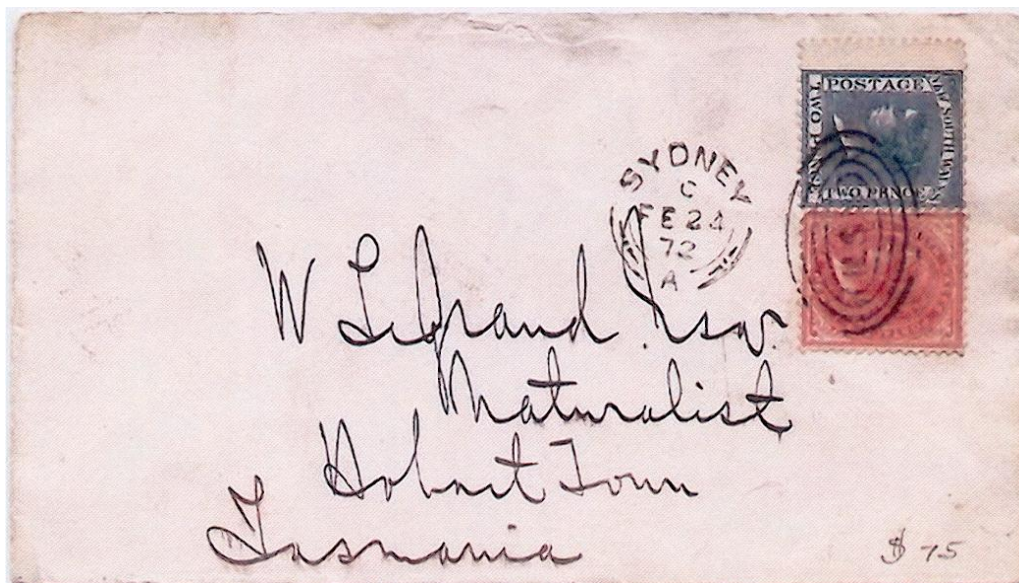 POSTAGE
TWO PENCE
NEW SOUTH WALES
TWO PENCE
SYDNEY
C
FE 24
72
A
W LeGrand Esqr.
Naturalist
Hobart Town
Tasmania
$ 75